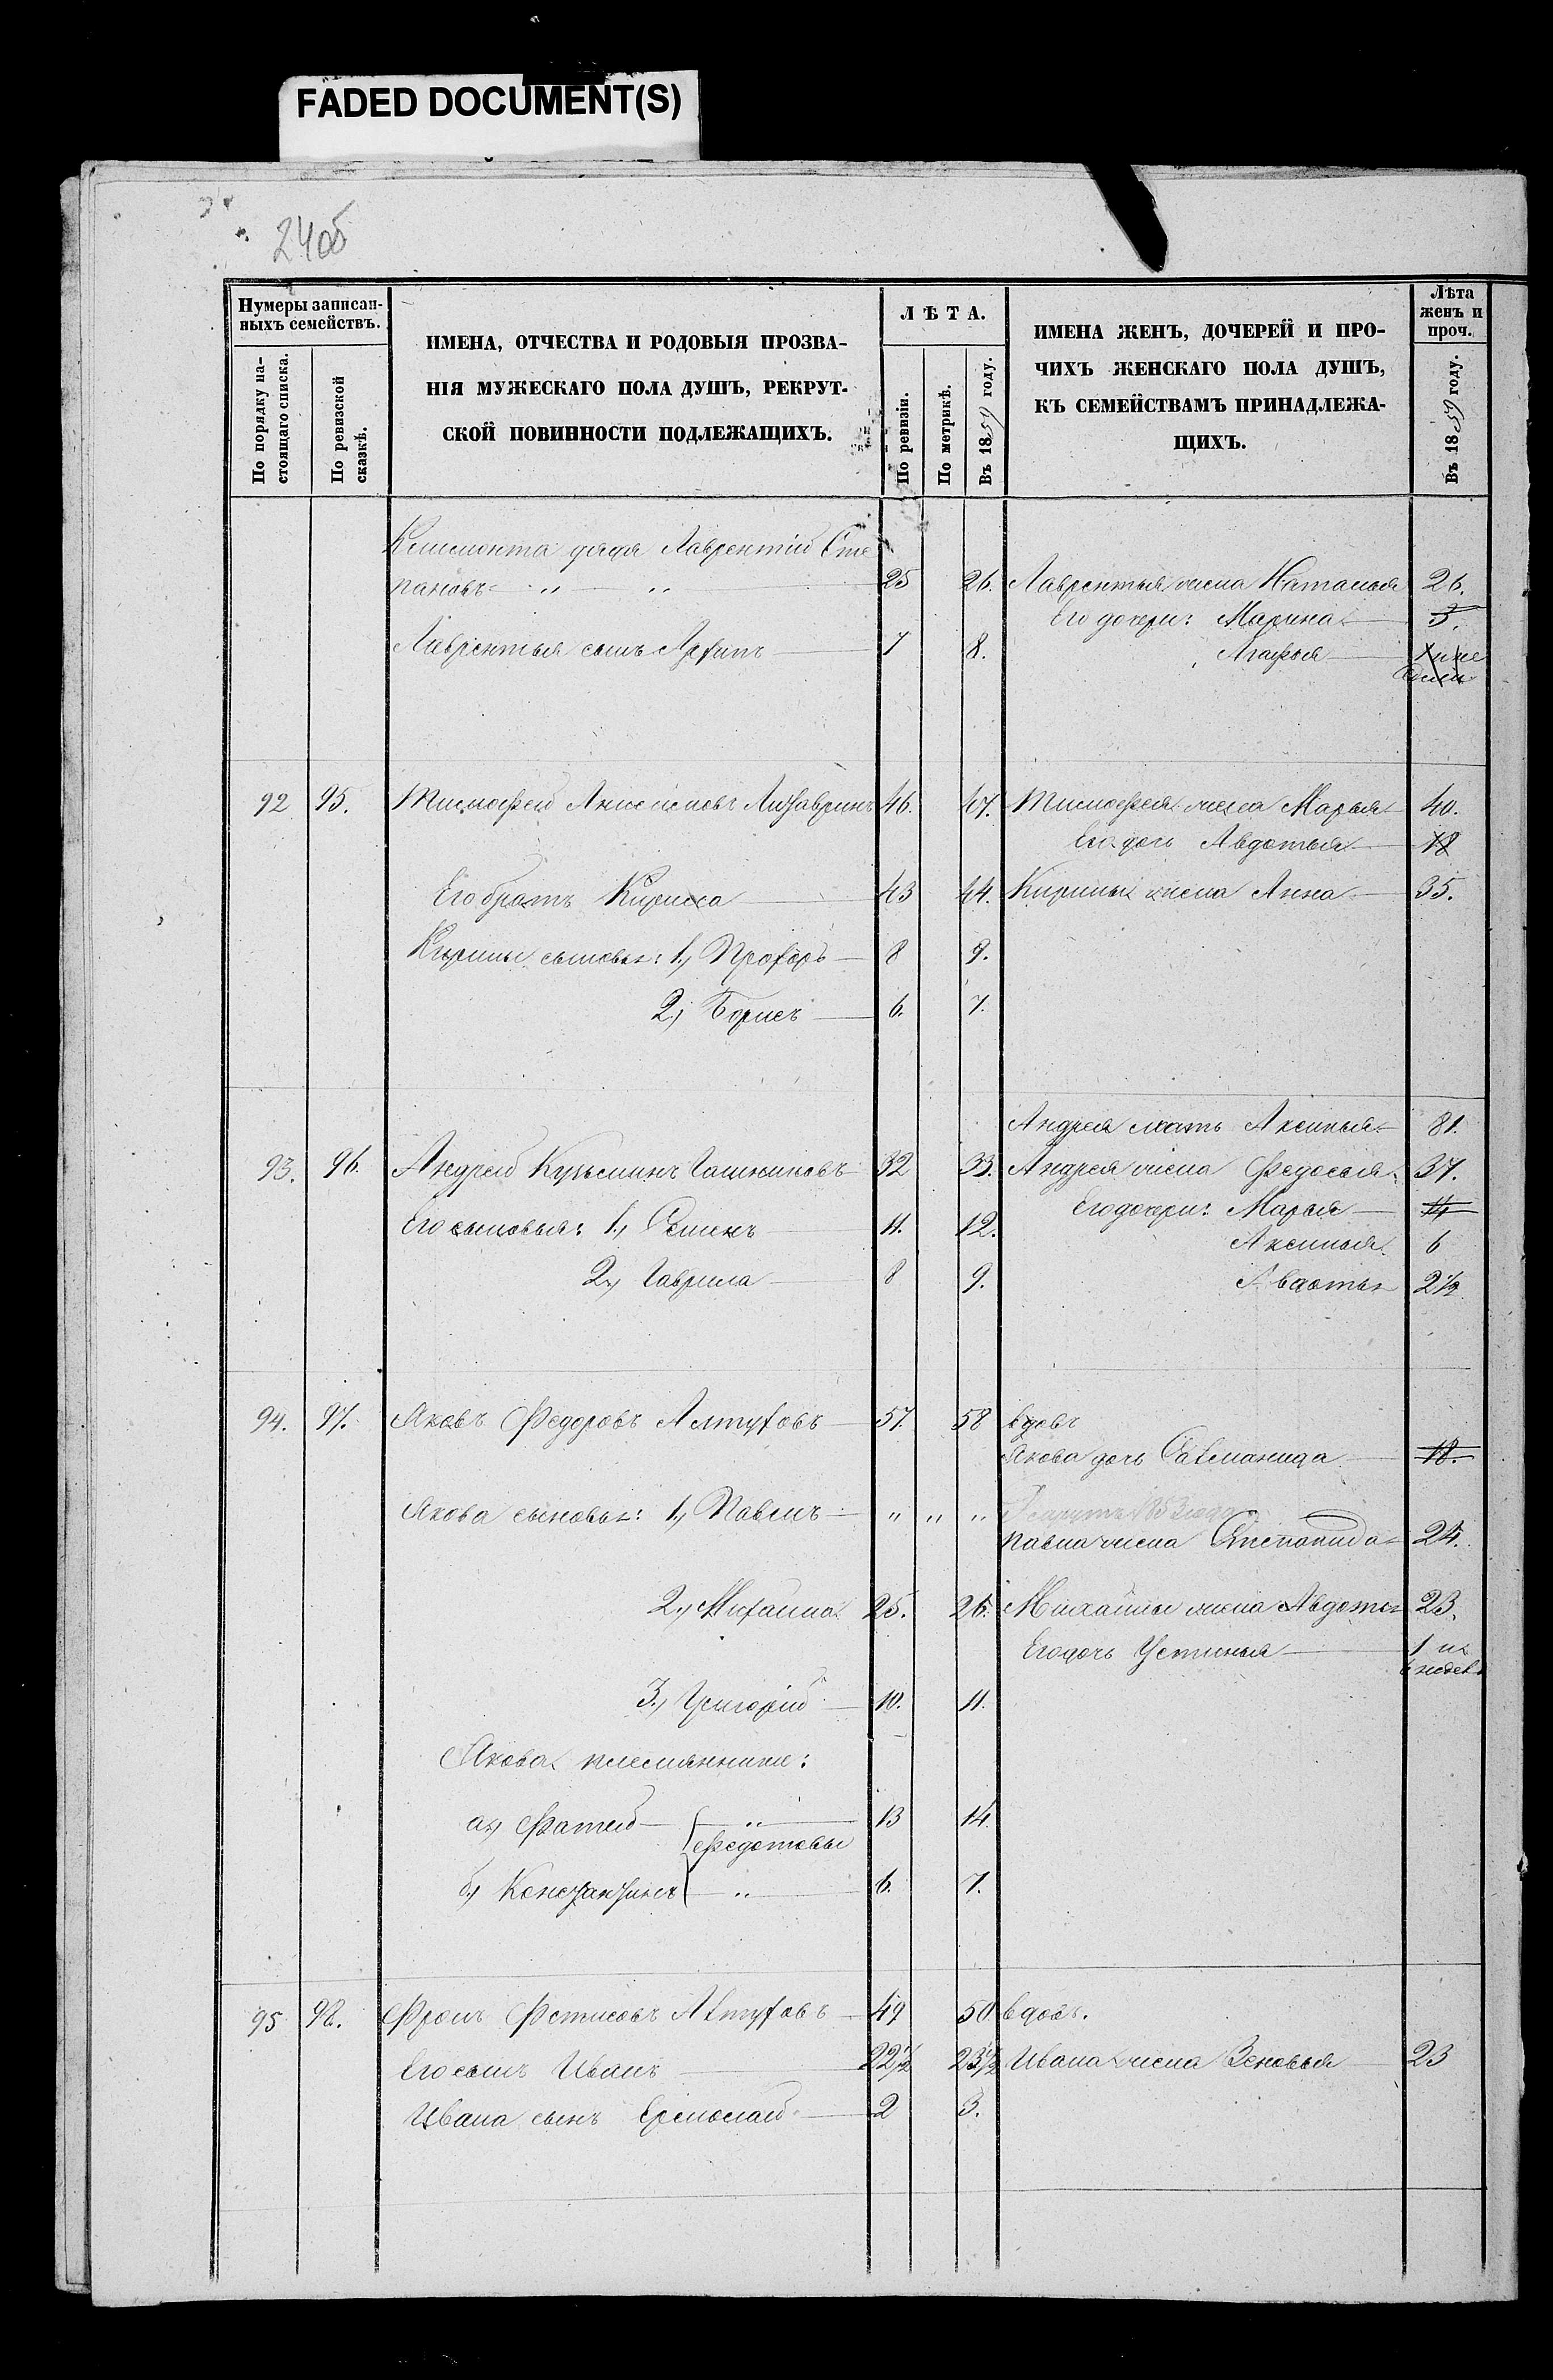 FADED DOCUMENT(S)
240б
Нумеры записан-
ныхъ семействъ.
По порядку на-
стоящаго списка.
По ревизской
сказкѣ.
ИМЕНА, ОТЧЕСТВА И РОДОВЫЯ ПРОЗВА-
НІЯ МУЖЕСКАГО ПОЛА ДУШЪ, РЕКРУТ-
СКОЙ ПОВИННОСТИ ПОДЛЕЖАЩИХЪ.
ЛѢТА.
По ревизіи.
По метрикѣ.
Въ 1859 году.
ИМЕНА ЖЕНЪ, ДОЧЕРЕЙ И ПРО-
ЧИХЪ ЖЕНСКАГО ПОЛА ДУШЪ,
КЪ СЕМЕЙСТВАМЪ ПРИНАДЛЕЖА-
ЩИХЪ.
Лѣта
женъ и
проч.
Въ 1859 году.
Климента дядя Лаврентій Сте
пановъ " " 25 26. Лаврентья жена Наталья 26.
Его дочери: Марина 3.
Лаврентья сынъ Архипъ 7 8. Агафья
92 95. Тимофей Анисимовъ 46. 47. Тимофея жена Марья 40.
Его дочь Авдотья 18
Его братъ Кирила 43 44. Кирилы жена Анна 35.
Кирилы сыновья: 1, Прохоръ 8 9.
2, Борисъ 6. 7.
Андрея мать Аксинья 81.
93. 96. Андрей Кузьминъ 32 33. Андрея жена Федосья 37.
Его дочери: Марья 14
Его сыновья: 1, Семенъ 11. 12.
Аксинья 6
2, Гаврила 8 9. 2½
94. 97. Яковъ Федоровъ Алтуховъ 57. 58 вдовъ
Якова дочь 18.
Якова сыновья: 1, Павелъ " " "
Павла жена Степанида 24.
2, Михайла 25. 26. Михайлы жена Авдотья 23.
Его дочь Устинья 1 и
недел
3, Григорій 10. 11.
Якова племянники:
а, Фатей " 13 14
Федотовы
б, Константинъ " 6. 7.
95 98. Фролъ Фетисовъ Алтуховъ 49 50 вдовъ.
Его сынъ Иванъ 22½ 23½ Ивана жена Зеновья 23
Ивана сынъ Ермолай 2 3.